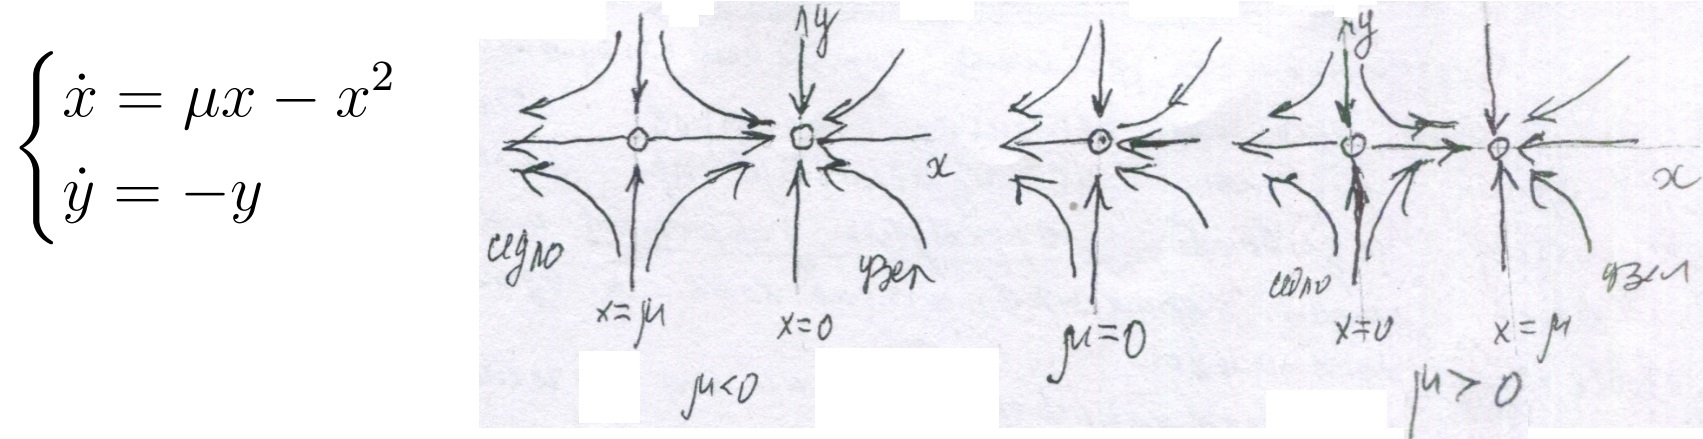 ẋ = μx − x²
ẏ = −y
y
x
седло
узел
x=μ
x=0
μ<0
μ=0
y
x
седло
узел
x=0
x=μ
μ>0